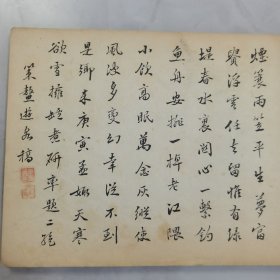 煙蓑雨笠平生夢富
貴浮雲任去留惟有綠
堤春水裏關心一繫釣
魚舟安排一棹老江隈
小飲高眠萬念灰縱使
風波多變幻幸從不到
是鄉來庚寅孟陬天寒
欲雪擁爐煮研率題二絕
策鰲遊客稿